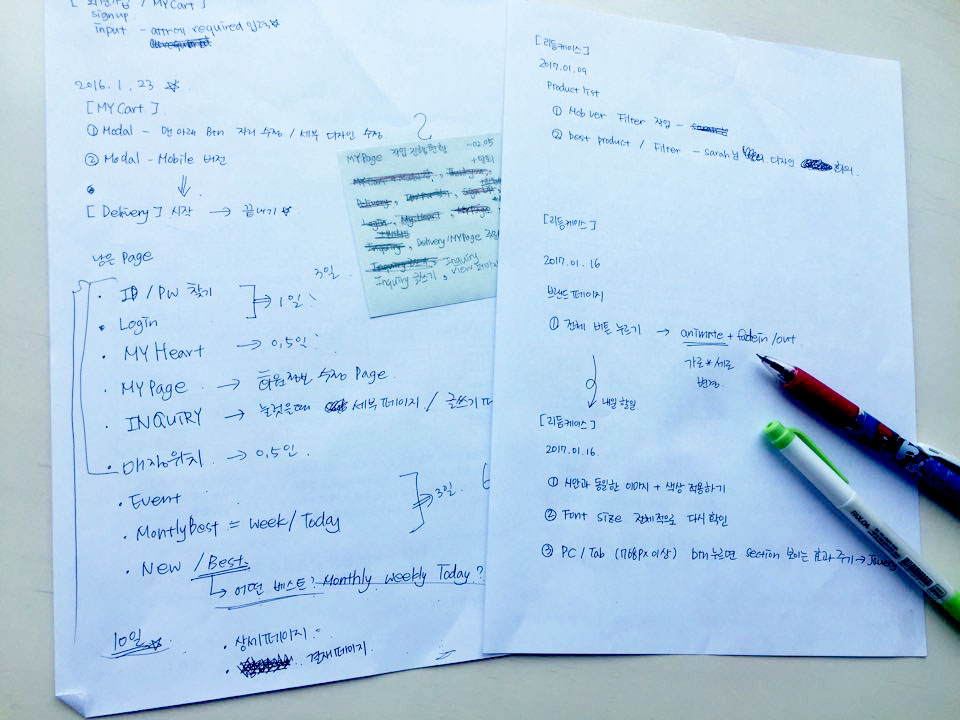 [ 회원가입 / MYCart ]
signup
input - required 입력
2016. 1. 23
[ MYCart ]
① Modal - 맨 아래 Btn 자리 수정 / 세부 디자인 수정
② Modal - Mobile 버전
[ Delivery ] 시작 → 끝내기
남은 Page
· ID / PW 찾기
→ 1일
3일
· Login
· MY Heart → 0.5일
· MY Page → 회원정보 수정 Page
· INQUIRY → 눌렀을때 세부페이지 / 글쓰기
· 매장위치 → 0.5일
· Event
→ 3일
· MontlyBest = Week / Today
· New / Best
↳ 어떤 베스트? Monthly Weekly Today ?
10일
· 상세페이지
· 결재페이지
MYPage 작업 진행현황 ...02.05
+ 탈퇴
MY Heart
Delivery / MYPage
Inquiry
Inquiry 글쓰기, view
[ 리듬케이스 ]
2017. 01. 09
Product list
① Mob ver Filter 작업 -
② best product / Filter - sarah님 디자인 회의
[ 리듬케이스 ]
2017. 01. 16
브랜드 페이지
① 전체 버튼 누르기 → animate + fadein / out
가로 * 세로
변경
내일 할일
[ 리듬케이스 ]
2017. 01. 16.
① 시안과 동일한 이미지 + 색상 적용하기
② Font size 전체적으로 다시 확인
③ PC / Tab (1768px이상) btn누르면 section 보이는 효과 주기 → Jquery